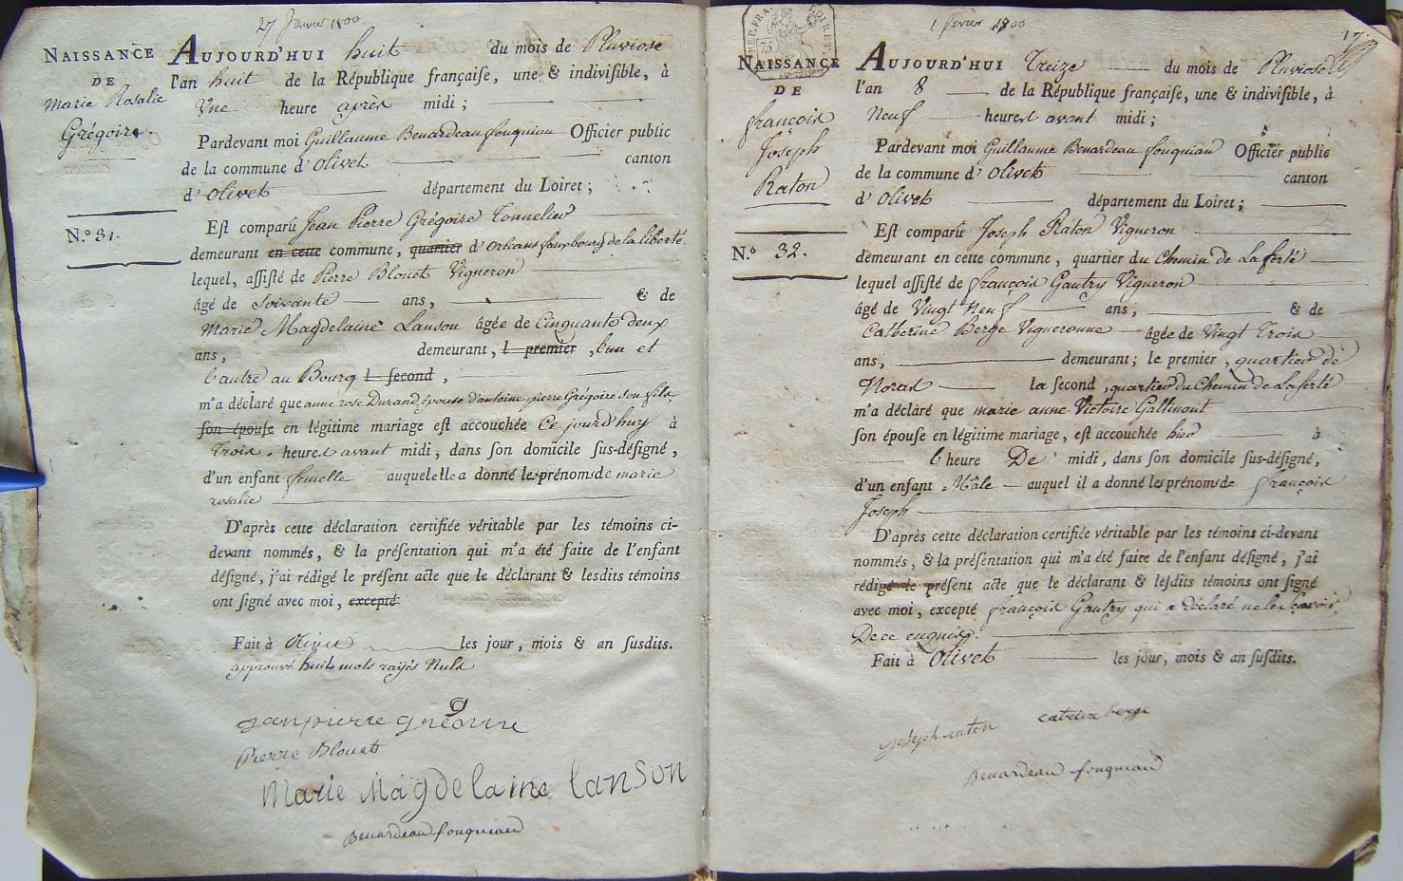 27 Janvier 1800
NAISSANCE
DE
Marie Rosalie
Grégoire.
N.º 31.
AUJOURD'HUI huit du mois de Pluviose
l'an huit de la République françaiſe, une & indiviſible, à
Une heure après midi ;
Pardevant moi Guillaume Benardeau fouqniau Officier public
de la commune d'Olivet canton
d'Olivet département du Loiret ;
Eſt comparû Jean Pierre Grégoire Tonnelier
demeurant en cette commune, quartier d'Orléans fauxbourg de la liberté
lequel, aſſiſté de Pierre Blouet Vigneron
âgé de Soixante ans, & de
Marie Magdelaine Lanson âgée de Cinquante deux
ans, demeurant, l premier, l'un et
l'autre au Bourg l ſecond,
m'a déclaré que anne rose Durand épouse d'antoine pierre Grégoire son fils
ſon épouſe en légitime mariage eſt accouchée Ce jourd'huy à
Trois heures avant midi, dans ſon domicile ſus-déſigné,
d'un enfant femelle auquel elle a donné les prénoms de marie
rosalie
D'après cette déclaration certifiée véritable par les témoins ci-
devant nommés, & la préſentation qui m'a été faite de l'enfant
déſigné, j'ai rédigé le préſent acte que le déclarant & lesdits témoins
ont ſigné avec moi, excepté
Fait à Olivet les jour, mois & an ſusdits.
approuvé huit mots rayés Nuls
jan pierre gréoire
Pierre Blouet
Marie Magdelaine lanson
Benardeau fouqniau
1 février 1800
17
NAISSANCE
DE
françois
Joseph
Raton
N.º 32.
AUJOURD'HUI Treize du mois de Pluviose
l'an 8 de la République françaiſe, une & indiviſible, à
Neuf heures avant midi ;
Pardevant moi Guillaume Benardeau fouqniau Officier public
de la commune d'Olivet canton
d'Olivet département du Loiret ;
Eſt comparû Joseph Raton Vigneron
demeurant en cette commune, quartier du Chemin de Laferté
lequel aſſiſté de françois Gautry Vigneron
âgé de Vingt Neuf ans, & de
Catherine Berge Vigneronne âgée de Vingt Trois
ans, demeurant ; le premier, quartier de
Noras la ſecond, quartier du Chemin de Laferté
m'a déclaré que marie anne Victoire Gallimont
ſon épouſe en légitime mariage, eſt accouchée hier à
l'heure De midi, dans ſon domicile ſus-déſigné,
d'un enfant Mâle auquel il a donné les prénoms de françois
Joseph
D'après cette déclaration certifiée véritable par les témoins ci-devant
nommés, & la préſentation qui m'a été faite de l'enfant déſigné, j'ai
rédigé le préſent acte que le déclarant & leſdits témoins ont ſigné
avec moi, excepté françois Gautry qui a déclaré ne le Savoir
De ce enquis.
Fait à Olivet les jour, mois & an ſuſdits.
joseph raton caterine berge
Benardeau fouqniau